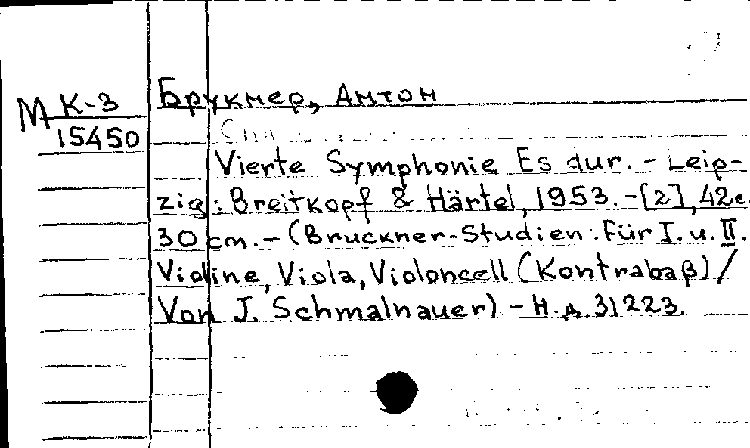 Брукнер, Антон
М К-3
15450
Vierte Symphonie Es dur. - Leip-
zig: Breitkopf & Härtel, 1953. - [2], 42с.
30 cm. - (Bruckner-Studien: für I. u. II.
Violine, Viola, Violoncell (Kontrabaß) /
Von J. Schmalnauer) - Н.д. 31223.